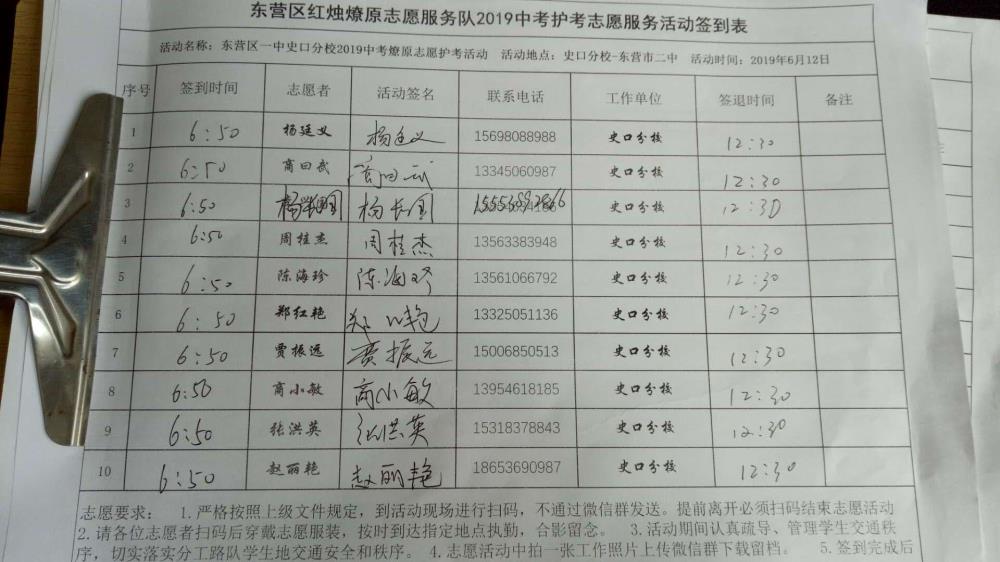 东营区红烛燎原志愿服务队2019中考护考志愿服务活动签到表
活动名称：东营区一中史口分校2019中考燎原志愿护考活动 活动地点：史口分校-东营市二中 活动时间：2019年6月12日
序号 签到时间 志愿者 活动签名 联系电话 工作单位 签退时间 备注
1 6:50 杨廷义 杨廷义 15698088988 史口分校 12:30
2 6:50 商曰武 商曰武 13345060987 史口分校 12:30
3 6:50 杨长国 杨长国 史口分校 12:30
4 6:50 周桂杰 周桂杰 13563383948 史口分校 12:30
5 6:50 陈海珍 陈海珍 13561066792 史口分校 12:30
6 6:50 郑红艳 郑红艳 13325051136 史口分校 12:30
7 6:50 贾振远 贾振远 15006850513 史口分校 12:30
8 6:50 商小敏 商小敏 13954618185 史口分校 12:30
9 6:50 张洪英 张洪英 15318378843 史口分校 12:30
10 6:50 赵丽艳 赵丽艳 18653690987 史口分校 12:30
志愿要求： 1.严格按照上级文件规定，到活动现场进行扫码，不通过微信群发送。提前离开必须扫码结束志愿活动
2.请各位志愿者扫码后穿戴志愿服装，按时到达指定地点执勤，合影留念。 3.活动期间认真疏导、管理学生交通秩
序，切实落实分工路队学生地交通安全和秩序。 4.志愿活动中拍一张工作照片上传微信群下载留档。 5.签到完成后